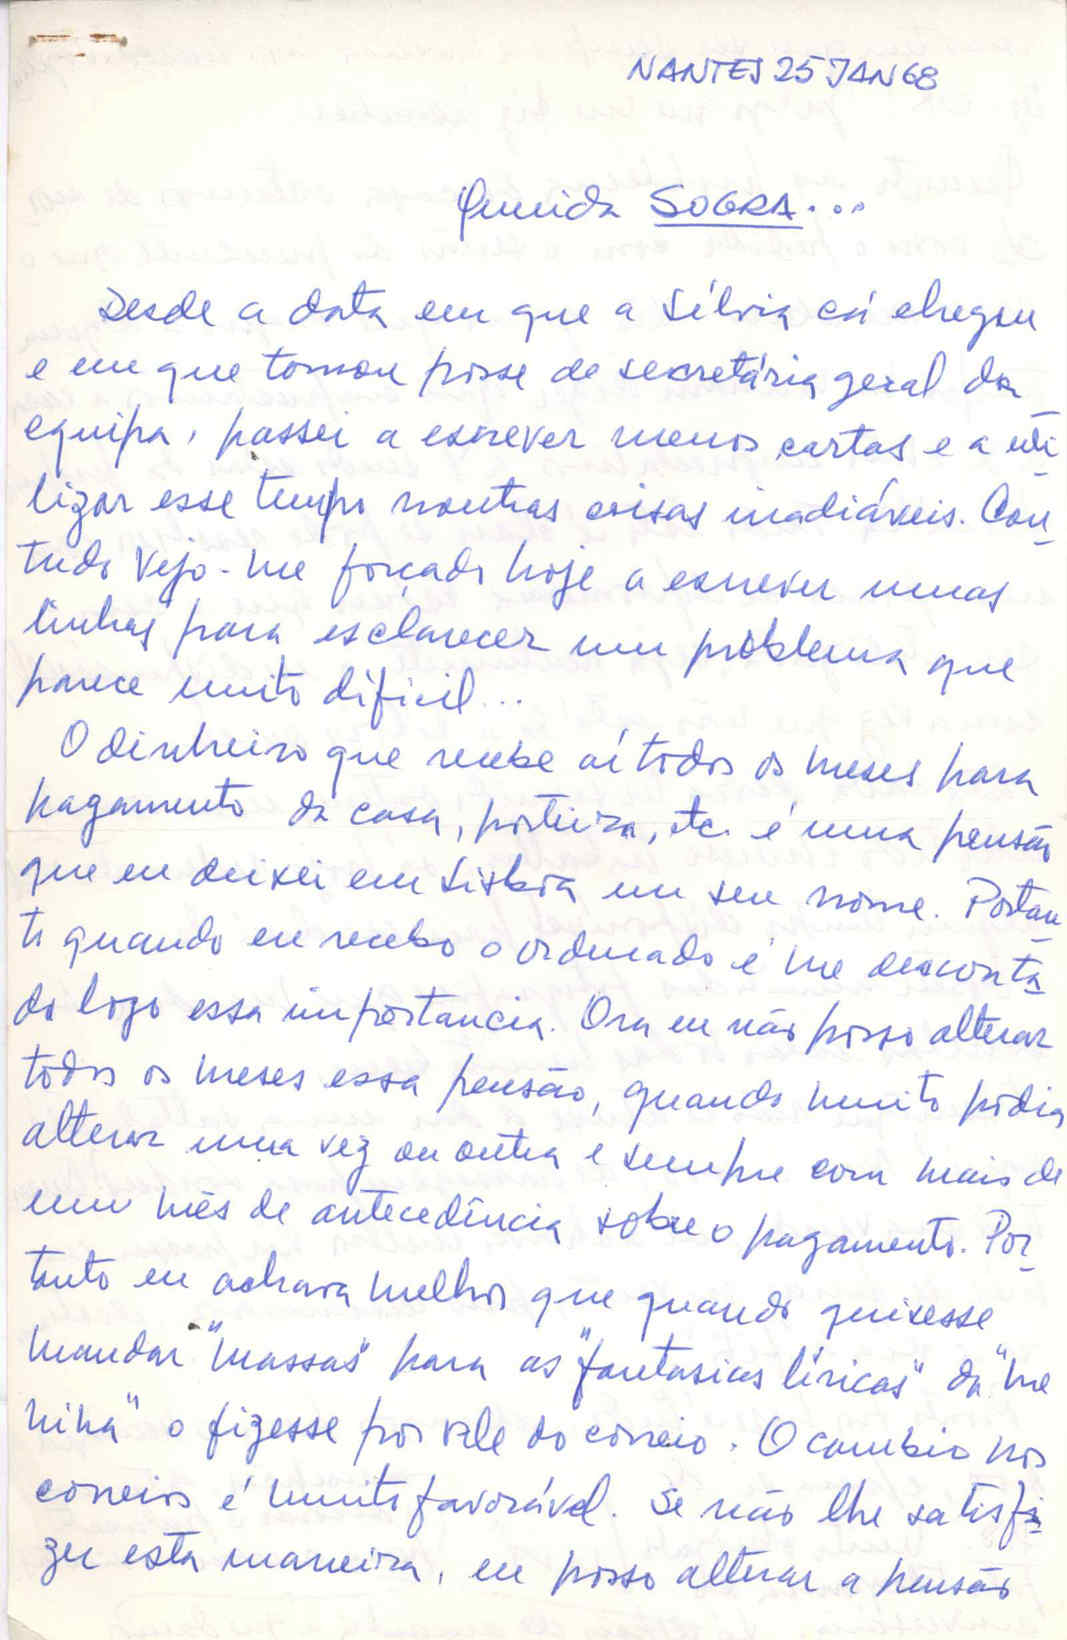 NANTES 25 JAN 68
Querida SOGRA...
Desde a data em que a Sílvia cá chegou
e em que tomou posse de secretária geral da
equipa, passei a escrever menos cartas e a uti-
lizar esse tempo noutras coisas inadiáveis. Con-
tudo vejo-me forçado hoje a escrever umas
linhas para esclarecer um problema que
parece muito dificil...
O dinheiro que recebe aí todos os meses para
pagamento da casa, porteira, etc. é uma pensão
que eu deixei em Lisboa em seu nome. Portan-
to quando eu recebo o ordenado é me desconta-
do logo essa importancia. Ora eu não posso alterar
todos os meses essa pensão, quando muito podia
alterar uma vez ou outra e sempre com mais de
um mês de antecedência sobre o pagamento. Por-
tanto eu achava melhor que quando quisesse
mandar "massas" para as "fantasias líricas" da "me
nina" o fizesse por vale do correio. O cambio nos
correios é muito favorável. Se não lhe satisfi-
zer esta maneira, eu posso alterar a pensão